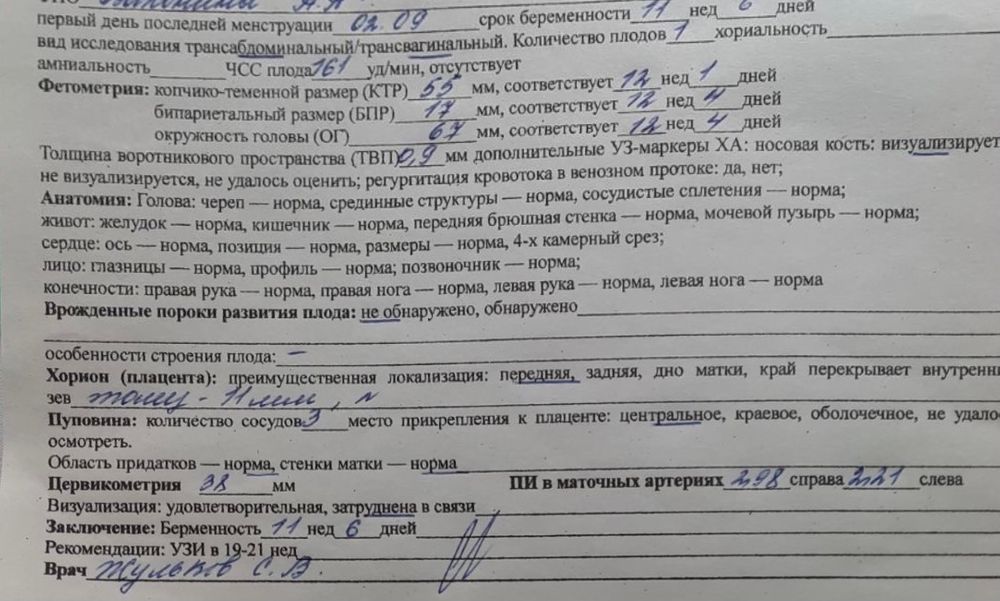 первый день последней менструации 02.09 срок беременности 11 нед 6 дней
вид исследования трансабдоминальный/трансвагинальный. Количество плодов 1 хориальность
амниальность ЧСС плода 161 уд/мин, отсутствует
Фетометрия: копчико-теменной размер (КТР) 55 мм, соответствует 12 нед 1 дней
бипариетальный размер (БПР) 17 мм, соответствует 12 нед 4 дней
окружность головы (ОГ) 67 мм, соответствует 12 нед 4 дней
Толщина воротникового пространства (ТВП) 0,9 мм дополнительные УЗ-маркеры ХА: носовая кость: визуализирует
не визуализируется, не удалось оценить; регургитация кровотока в венозном протоке: да, нет;
Анатомия: Голова: череп — норма, срединные структуры — норма, сосудистые сплетения — норма;
живот: желудок — норма, кишечник — норма, передняя брюшная стенка — норма, мочевой пузырь — норма;
сердце: ось — норма, позиция — норма, размеры — норма, 4-х камерный срез;
лицо: глазницы — норма, профиль — норма; позвоночник — норма;
конечности: правая рука — норма, правая нога — норма, левая рука — норма, левая нога — норма
Врожденные пороки развития плода: не обнаружено, обнаружено
особенности строения плода: —
Хорион (плацента): преимущественная локализация: передняя, задняя, дно матки, край перекрывает внутренни
зев толщ - 11 мм, N
Пуповина: количество сосудов 3 место прикрепления к плаценте: центральное, краевое, оболочечное, не удало
осмотреть.
Область придатков — норма, стенки матки — норма
Цервикометрия 38 мм ПИ в маточных артериях 2,98 справа 2,21 слева
Визуализация: удовлетворительная, затруднена в связи
Заключение: Берменность 11 нед 6 дней
Рекомендации: УЗИ в 19-21 нед
Врач Жульков С. В.